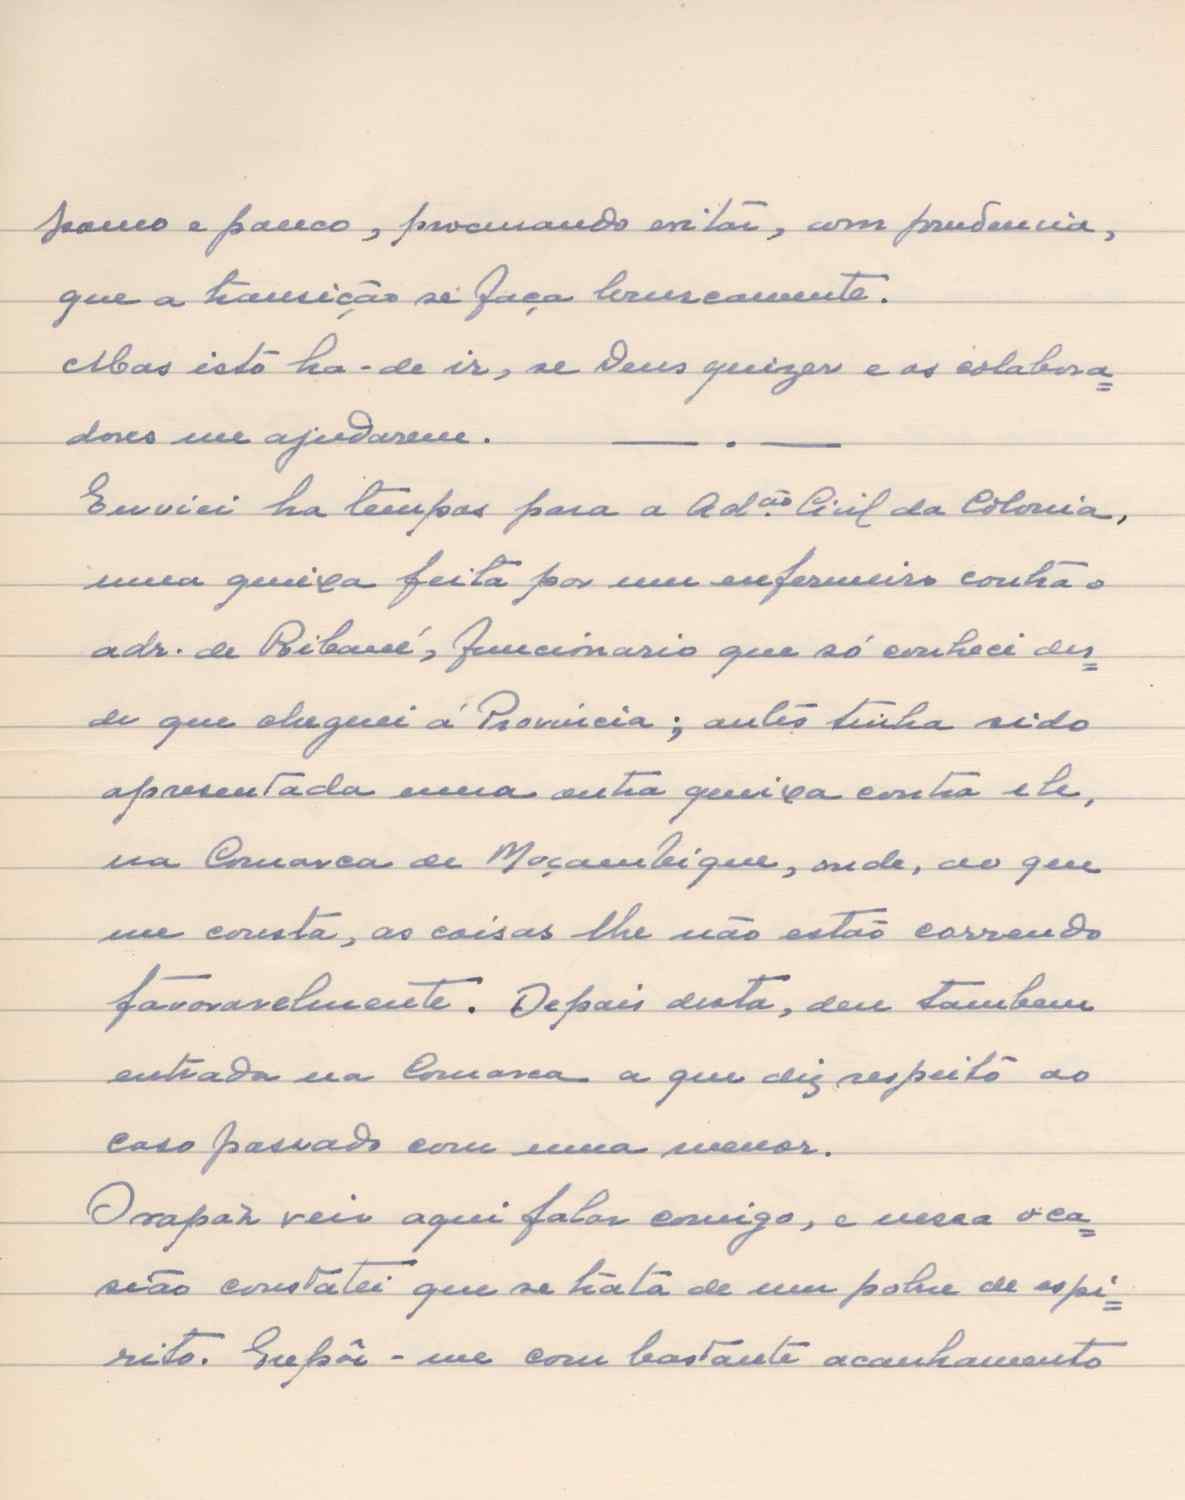 pouco e pouco, procurando evitar, com prudencia,
que a transição se faça bruscamente.
Mas isto ha-de ir, se Deus quizer e os colabora=
dores me ajudarem. — . —
Enviei ha tempos para a Ad.ão Civil da Colonia,
uma queixa feita por um enfermeiro contra o
adr. de Ribaué, funcionario que só conheci des=
de que cheguei á Provincia; antes tinha sido
apresentada uma outra queixa contra ele,
na Comarca de Moçambique, onde, ao que
me consta, as coisas lhe não estão correndo
favoravelmente. Depois desta, deu tambem
entrada na Comarca a que diz respeito ao
caso passado com uma menor.
O rapaz veio aqui falar comigo, e nessa oca=
sião constatei que se trata de um pobre de espi=
rito. Expôs-me com bastante acanhamento